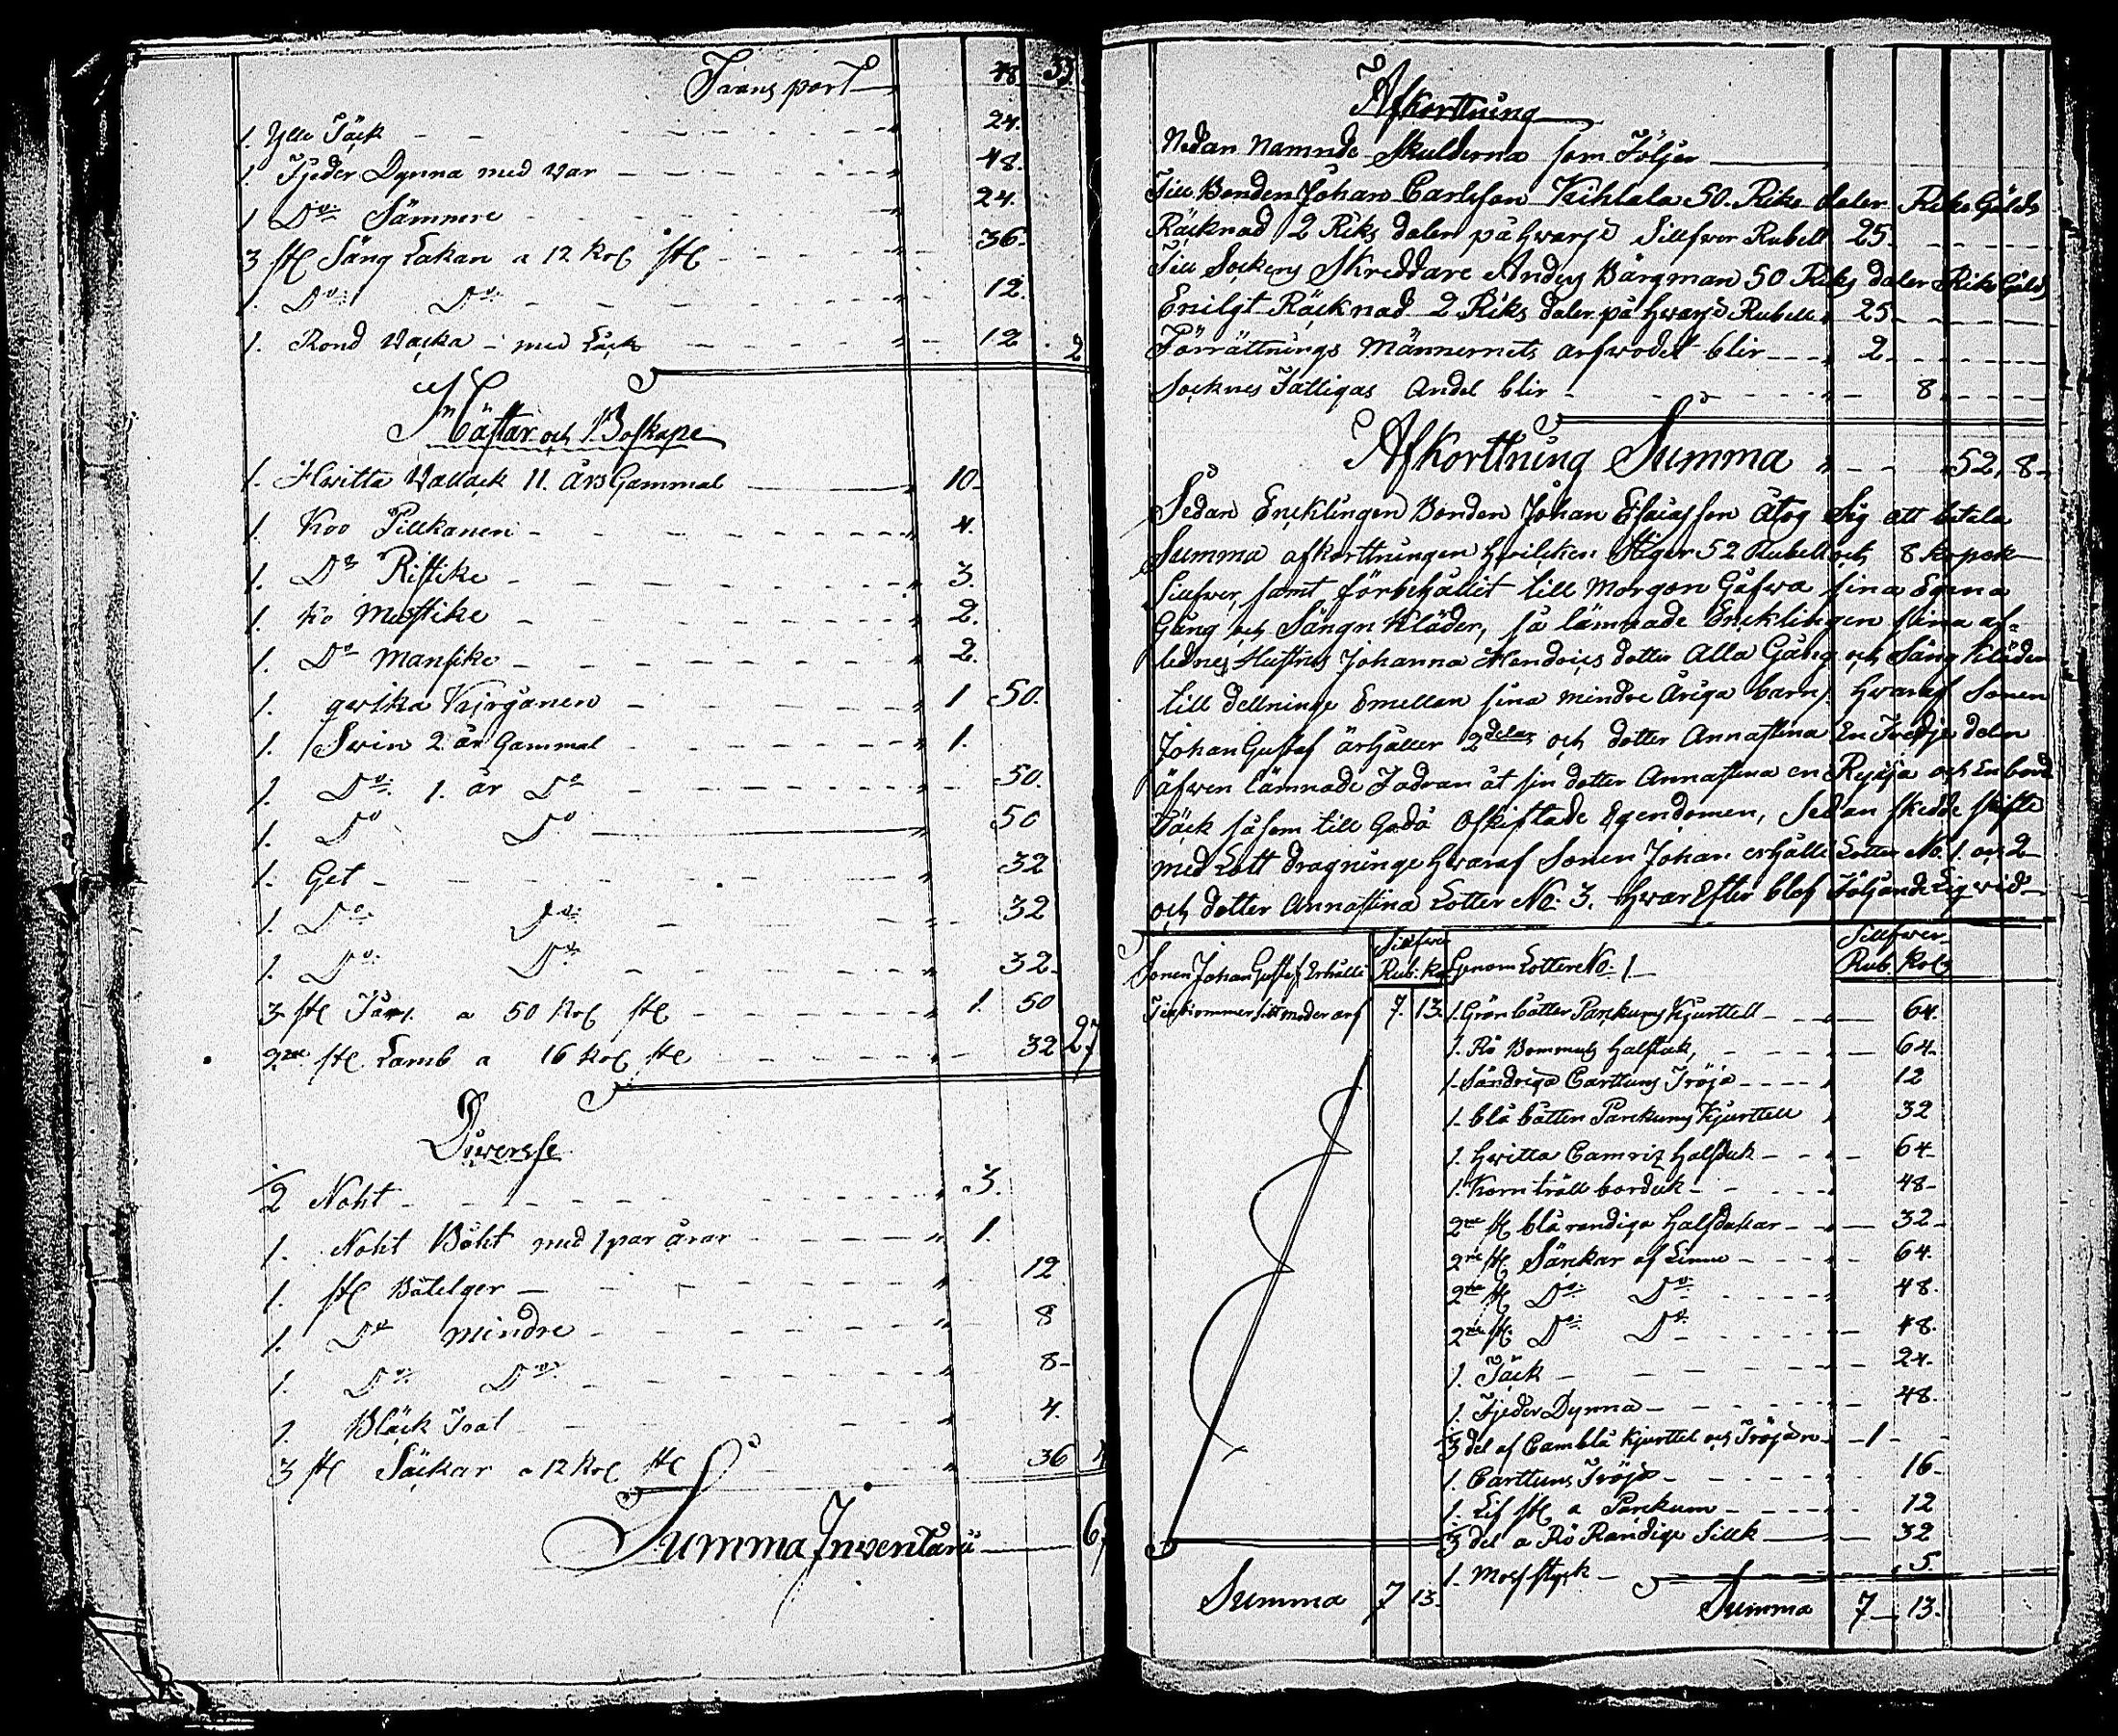 Transport 48 33
1. Ylle Täck 24.
1. Fjeder Dynna med Var 48.
1 Do Sämmre 24.
3 st Säng Lakan a 12 Kop st 36.
1. Do Do 12.
1. Rond Vacka med Låck 12 2
Hästar och Boskape
1. Hwitta Vallack 11. års Gammal 10
1. Koo Pillkanen 4.
1. Do Ristike 3.
1. Ko Mustike 2.
1. Do Mansike 2.
1. qwika Kirjanen 1 50.
1. Swin 2. år Gammal 1.
1. Do 1. år Do 50.
1. Do Do 50
1. Get 32
1. Do Do 32
1. Do Do 32
3 st Får a 50 Kop st 1. 50
2ne st Lamb a 16 Kop st 32 27
Diwersse
1/2 Noht 3.
1. Noht Båht med 1 par årar 1.
1. st Båtelger 12
1. Do mindre 8
1. Do Do 8
1. Bläck Tral 4.
3 st Säckar a 12 Kop st 36
Summa Inventarii 6
Afkorttning
Nedan Namnde Skulderna som Följer
Till Bonden Johan Carlsson Kihlala 50. Riks daler Riks Gälds
Räcknad 2 Riks daler på hwarje Sillfwer Rubell 25.
Till Sockens Skreddare Anders Bärgman 50 Riks daler Riks Gäld
Enligt Räcknad 2 Riks daler på hwarje Rubell 25
Förrättnings Männernets arfwodet blir 2.
Socknes Fattigas Andel blir 8
Afkorttning Summa 52, 8
Sedan Encklingen Bonden Johan Esaiasson Åtog Sig att betala
Summa afkorttningen hwilcken Stiger 52 Rubell och 8 kopek
Sillfwer, samt förbehållit till Morgon Gåfwa sina Egna
Gång och Sängn Kläder, så lämnade Encklingen sina af=
lednes Hustrus Johanna Hendrics dotter Alla Gång och Säng Kläder
till dellninge Emellan sina mindre Åriga barn, hwaraf Sonen
Johan Gustaf ärhåller 2 delar och dotter Annastina En Tredje delen
äfwen lämnade Fadran åt sin dotter Annastina en Ryssja och En
Täck såsom till Godå Oskiftade Egendomen, Sedan skedde skifte
med Lott dragninge hwaraf Sonen Johan erhålle Lotter No. 1. och 2
och dotter Annastina Lotter No. 3. hwar Efter blef Följande Liqwid
Sonen Johan Gustaf Erhålle Sillfwer Rub: Ko Genom Lotter No. 1 Sillfwer Rub. Kop
Tillkommer sitt moder arf 7. 13. 1. Grön Parckums Kjurttell 64.
1. Rö Bommuls halsduk, 64.
1. Sändriga Carttuns Tröja 12
1. blå Parckums Kjurttell 32
1. Hwitta Camriz halsduk 64
1. Korn träll borduk 48
2ne st blå randiga halsdukar 32
2ne st Särckar af Linne 64.
2ne st Do Do 48.
2ne st. Do Do 48.
1. Täck 24.
1. Fjeder Dynna 48.
1/3 del af Camblå Kjurttel och Tröjan 1
1. Carttuns Tröja 16
1. Lif st a Parckum 12
1/3 del a Rö Randige Sillk 32
1. Moss styck 5.
Summa 7 13. Summa 7 13.